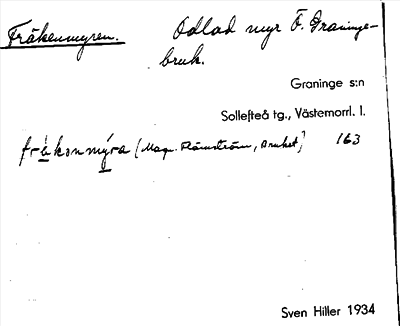 Fräkenmyren. Odlad myr Ö. Graninge-
bruk.
Graninge s:n
Sollefteå tg., Västernorrl. l.
fräkonmýra (Magn. Strömström, Bruket) 163
Sven Hiller 1934